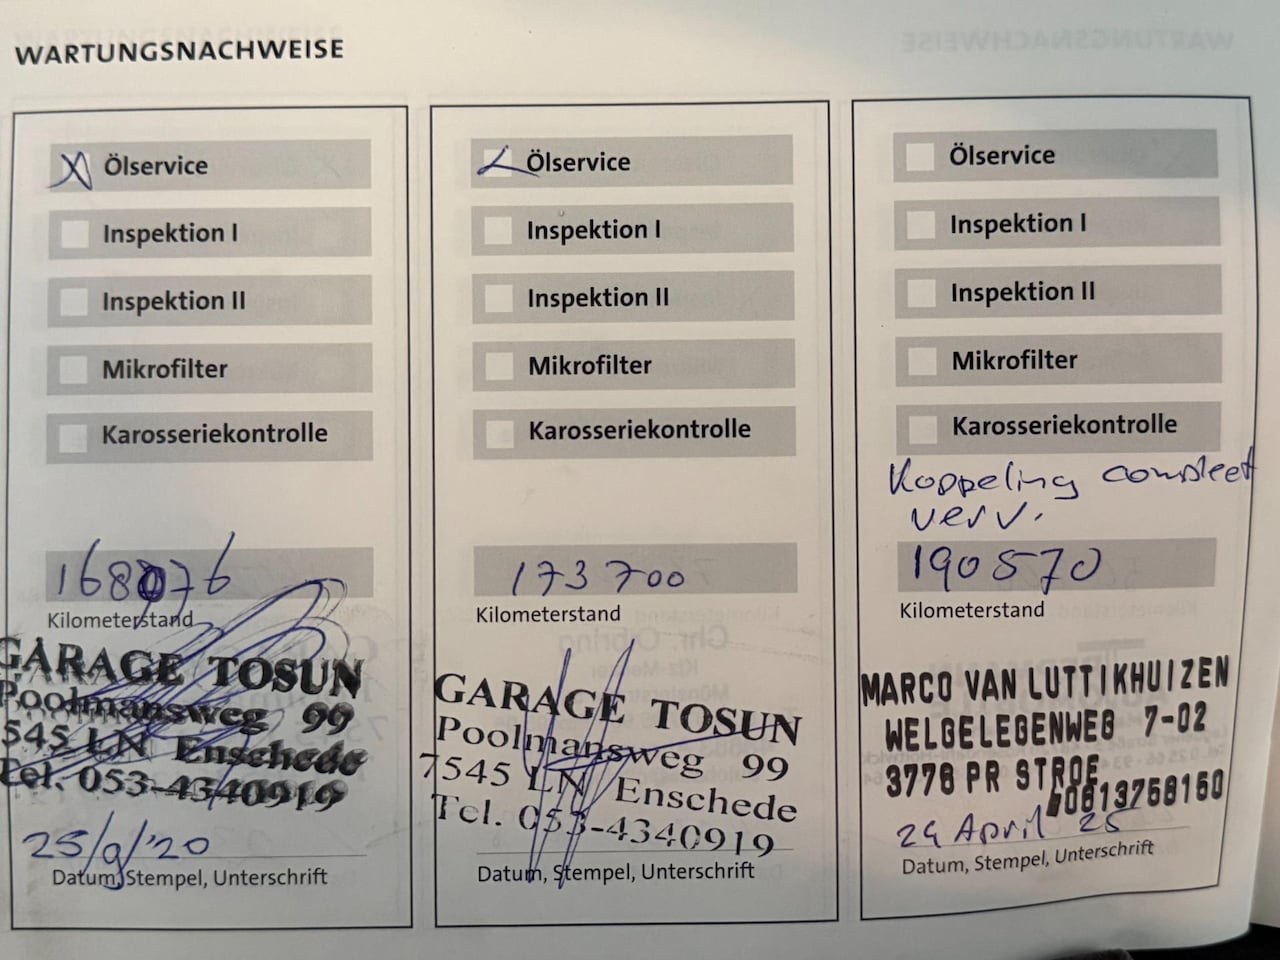 WARTUNGSNACHWEISE
X Ölservice
Inspektion I
Inspektion II
Mikrofilter
Karosseriekontrolle
168076
Kilometerstand
GARAGE TOSUN
Poolmansweg 99
545 LN Enschede
Tel. 053-4340919
25/9/'20
Datum, Stempel, Unterschrift
Ölservice
Inspektion I
Inspektion II
Mikrofilter
Karosseriekontrolle
173700
Kilometerstand
GARAGE TOSUN
Poolmansweg 99
7545 LN Enschede
Tel. 053-4340919
Datum, Stempel, Unterschrift
Ölservice
Inspektion I
Inspektion II
Mikrofilter
Karosseriekontrolle
Koppeling compleet
verv.
190570
Kilometerstand
MARCO VAN LUTTIKHUIZEN
WELGELEGENWEG 7-02
3776 PR STROE
0613768160
24 April 25
Datum, Stempel, Unterschrift